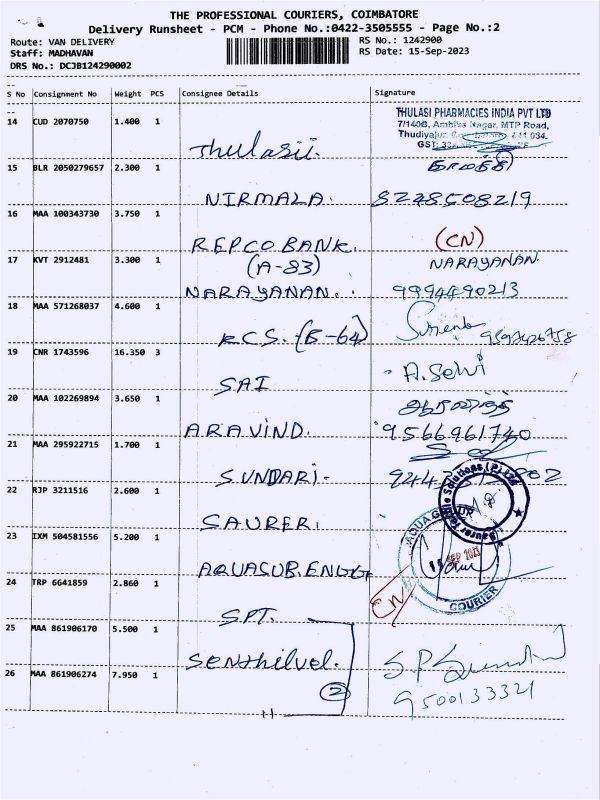 THE PROFESSIONAL COURIERS, COIMBATORE
Delivery Runsheet - PCM - Phone No.:0422-3505555 - Page No.:2
Route: VAN DELIVERY
RS No.: 1242900
Staff: MADHAVAN
RS Date: 15-Sep-2023
DRS No.: DCJB124290002
S No Consignment No Weight PCS Consignee Details Signature
14 CUD 2070750 1.400 1
THULASI PHARMACIES INDIA PVT LTD
7/140B, Ambika Nagar, MTP Road,
Thudiyalur,
GST:
Thulasii.
15 BLR 2050279657 2.300 1
NIRMALA. 8248508219
16 MAA 100343730 3.750 1
REPCO BANK. (CN)
(A-83)
17 KVT 2912481 3.300 1
NARAYANAN
NARAYANAN.. 9994490213
18 MAA 571268037 4.600 1
KCS. (B-64)
19 CNR 1743596 16.350 3
A. Selvi
SAI
20 MAA 102269894 3.650 1
ARAVIND. 9566961740
21 MAA 295922715 1.700 1
SUNDARI-
22 RJP 3211516 2.600 1
SAURER.
23 IXM 504581556 5.200 1
AQUASUB.ENGG
SEP 2023
COURIER
24 TRP 6641859 2.860 1
CN
SPT.
25 MAA 861906170 5.500 1
Senthilvel.
26 MAA 861906274 7.950 1
2
9500133321